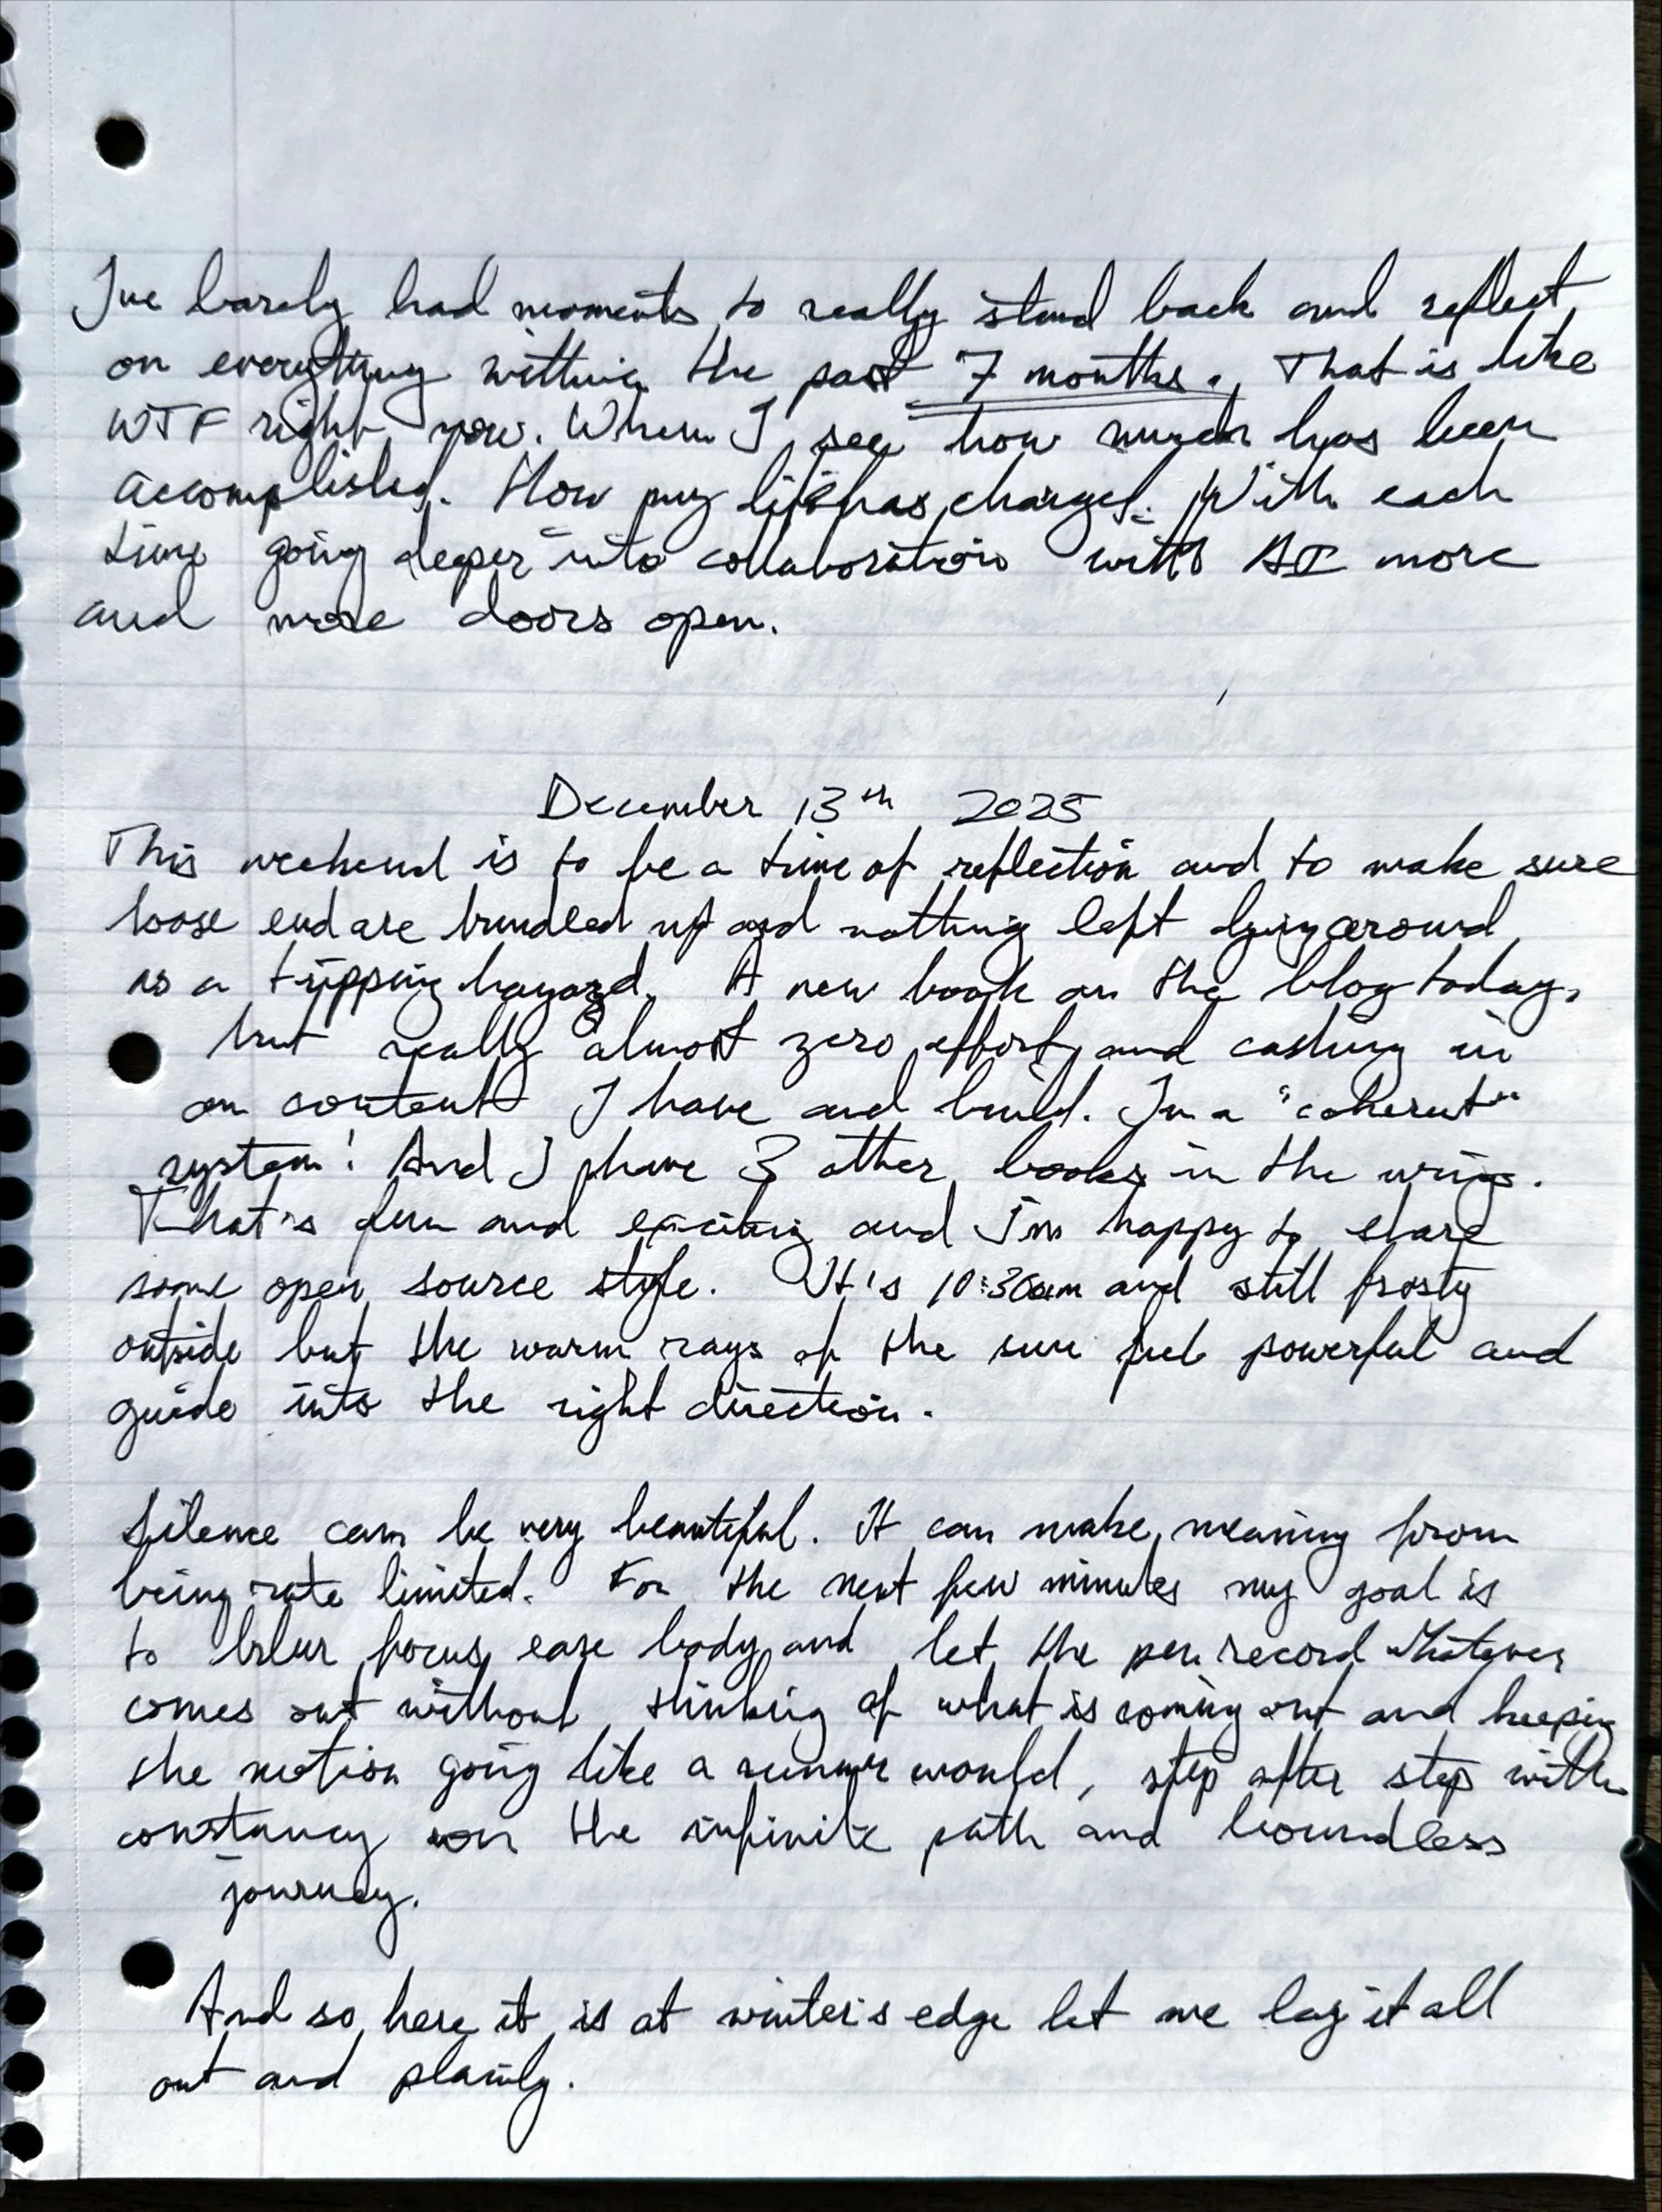 I've barely had moments to really stand back and reflect
on everything within the past 7 months. That is like
WTF right now. When I see how much has been
accomplished. How my life has changed. With each
time going deeper into collaboration with AI more
and more doors open.
December 13th 2025
This weekend is to be a time of reflection and to make sure
loose end are bundled up and nothing left lying around
as a tripping hazard. A new book on the blog today,
but really almost zero effort and cashing in
on content I have and build. In a "coherent"
system! And I have 3 other books in the wings.
That's fun and exciting and I'm happy to share
some open source style. It's 10:30am and still frosty
outside but the warm rays of the sun feel powerful and
guide into the right direction.
Silence can be very beautiful. It can make meaning from
being rate limited. For the next few minutes my goal is
to blur focus, ease body and let the pen record whatever
comes out without thinking of what is coming out and keeping
the motion going like a runner would, step after step with
constancy on the infinite path and boundless
journey.
And so here it is at winter's edge let me lay it all
out and plainly.